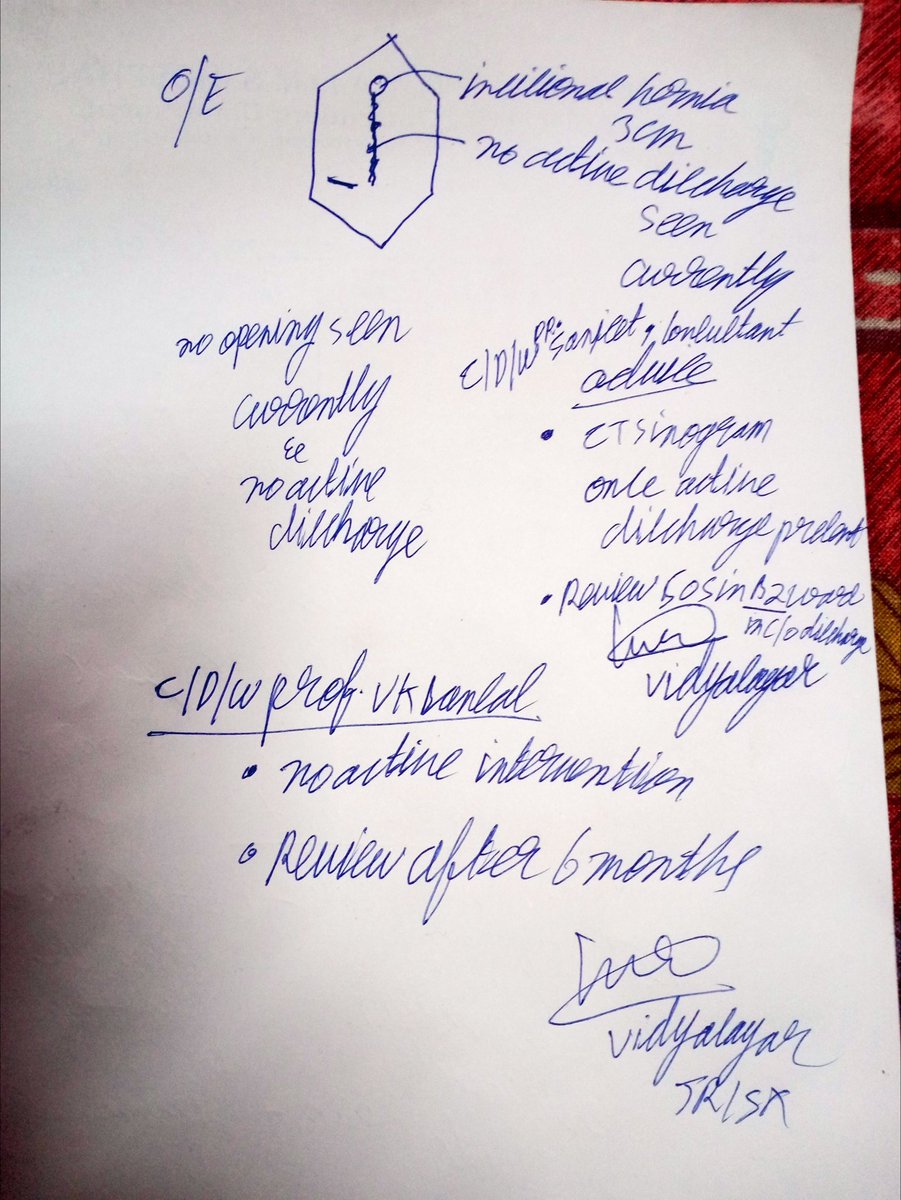 O/E
incisional hernia
3cm
no active discharge
seen
currently
no opening seen
currently
no active
discharge
C/D/W Dr. Sanket, Consultant
advice
• CT Sinogram
once active
discharge present
• Review SOS in B2 ward
discharge
Vidyalayar
C/D/W prof. VK Bansal
• no active intervention
• Review after 6 months
Vidyalayar
JR/SK